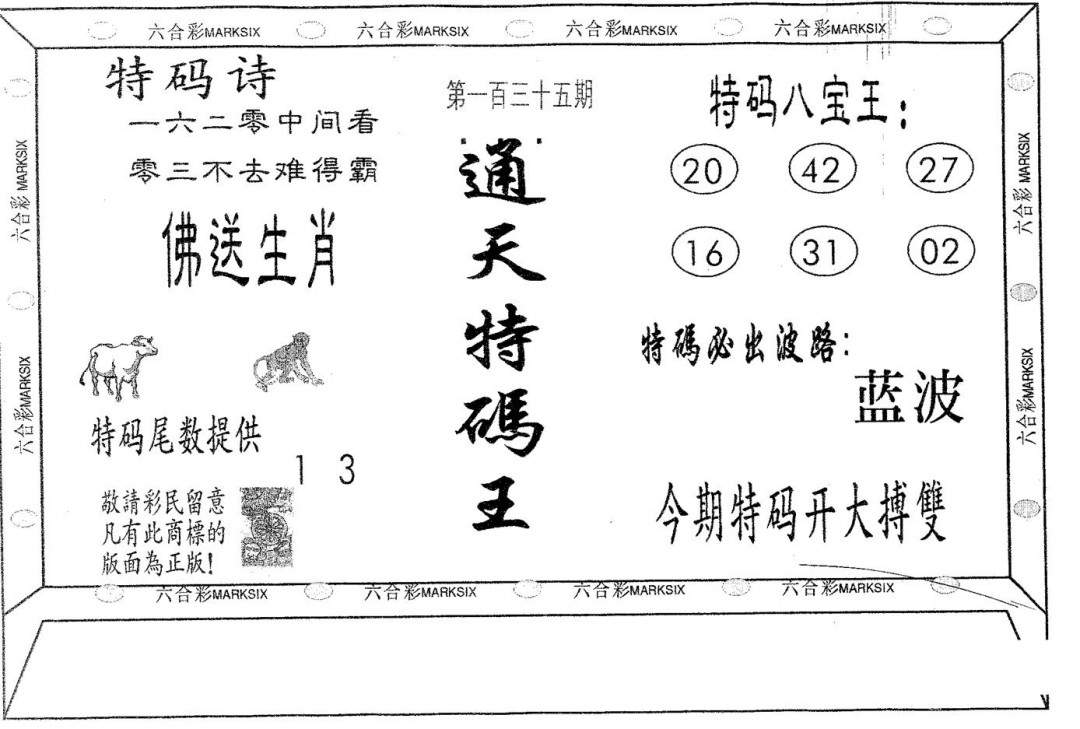 六合彩MARKSIX 六合彩MARKSIX 六合彩MARKSIX 六合彩MARKSIX
特码诗
一六二零中间看
零三不去难得霸
佛送生肖
特码尾数提供
1 3
敬請彩民留意
凡有此商標的
版面為正版!
第一百三十五期
通
天
特
碼
王
特码八宝王:
20 42 27
16 31 02
特碼必出波路:
蓝波
今期特码开大搏雙
六合彩 MARKSIX
六合彩MARKSIX
六合彩 MARKSIX
六合彩MARKSIX
六合彩MARKSIX 六合彩MARKSIX 六合彩MARKSIX 六合彩MARKSIX